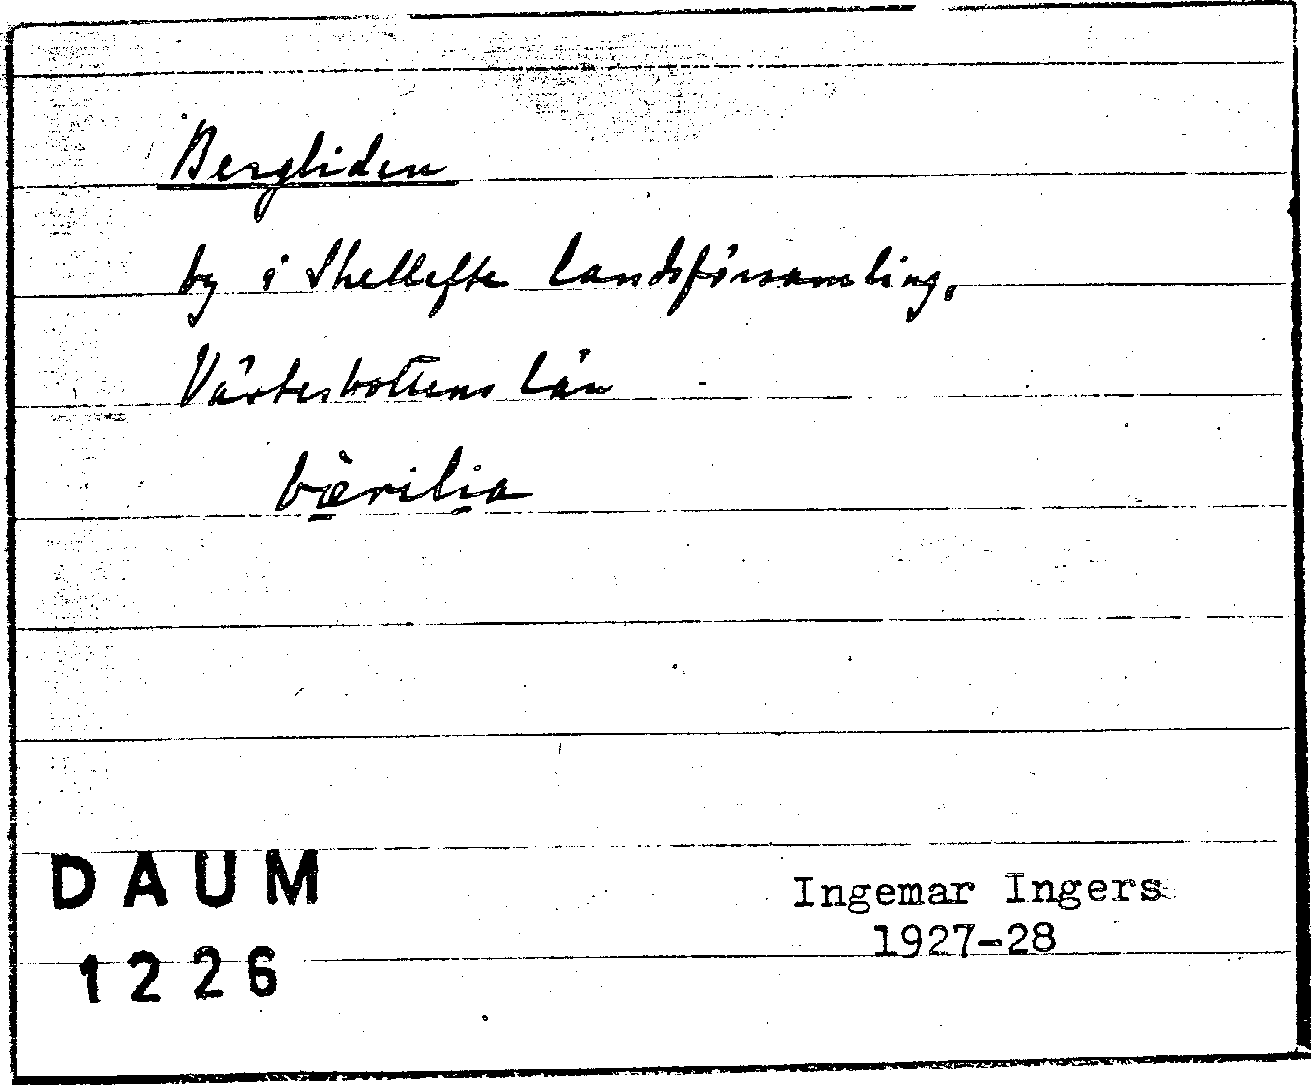 Bergliden
by i Skellefte landsförsamling,
Västerbottens län
bæ̀rilia
DAUM
1226
Ingemar Ingers
1927-28